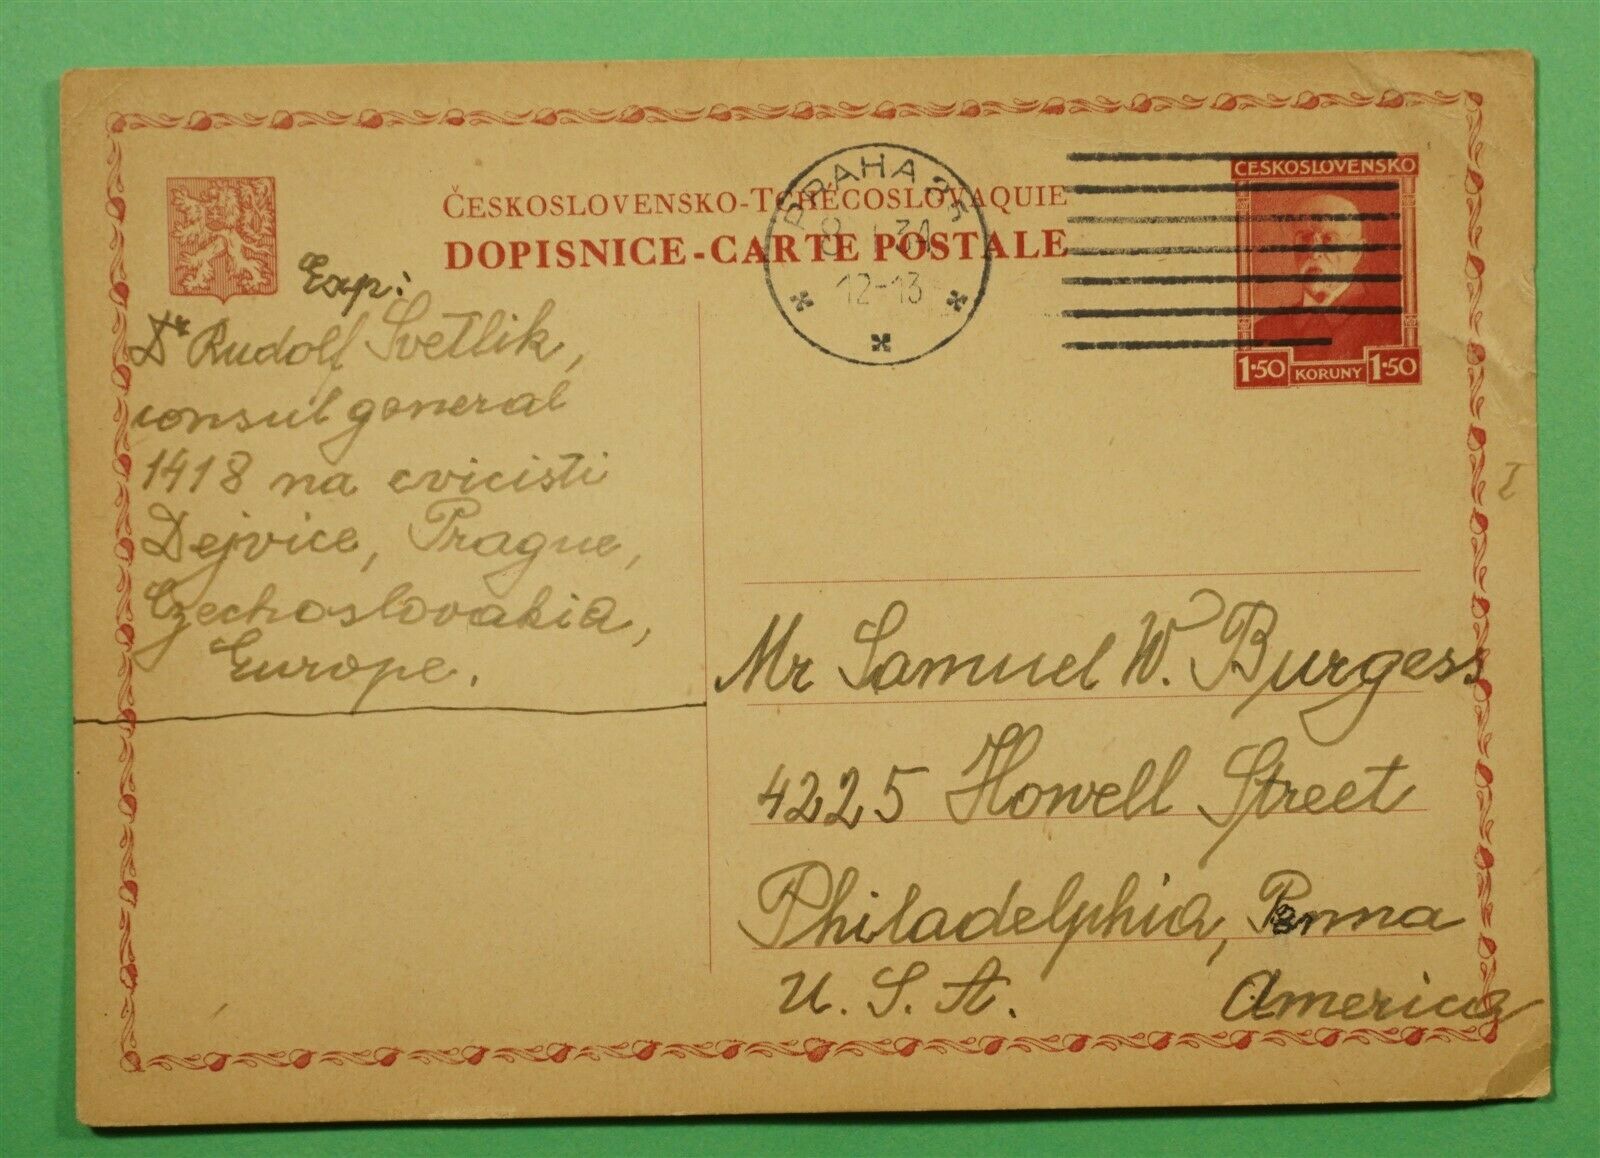 ČESKOSLOVENSKO-TCHÉCOSLOVAQUIE
DOPISNICE-CARTE POSTALE
PRAHA
8 I 34
12-13
ČESKOSLOVENSKO
1·50 KORUNY 1·50
Exp:
Dr Rudolf Svetlik,
consul general
1418 na cvicisti
Dejvice, Prague,
Czechoslovakia,
Europe.
Mr Samuel W. Burgess
4225 Howell Street
Philadelphia, Penna
U. S. A. America